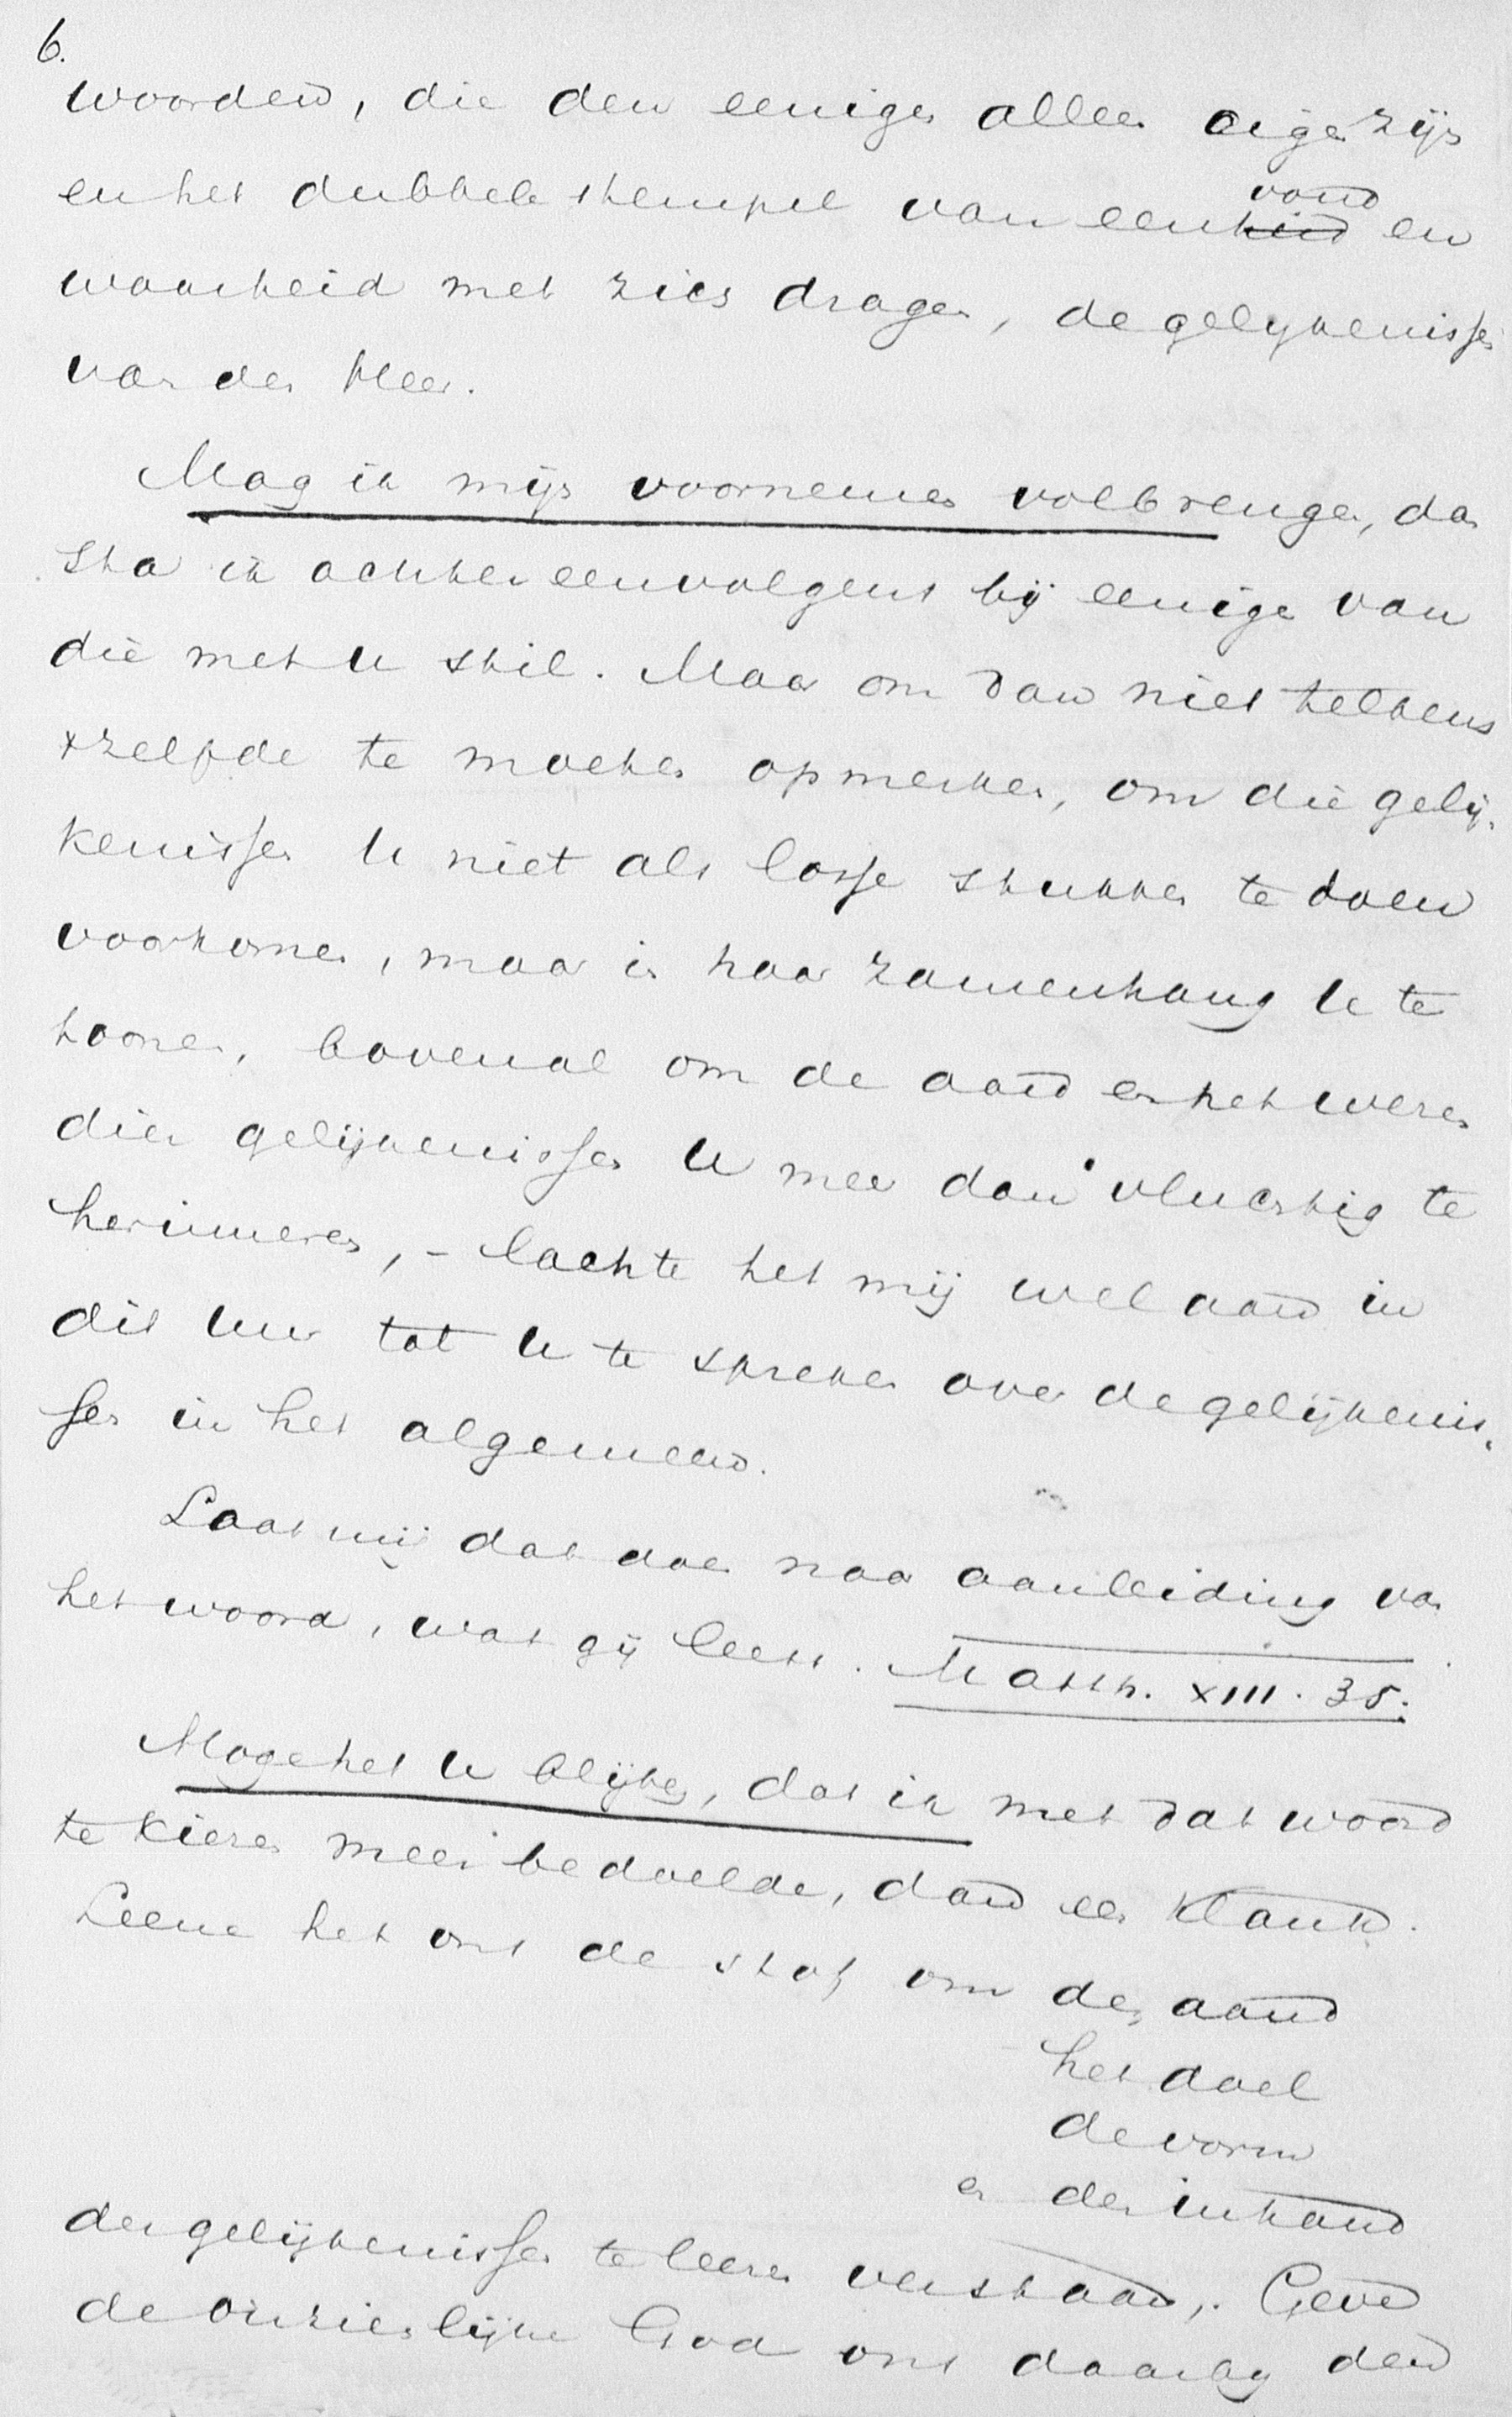 6.
woorden, die den eenigen alleen eigen zijn
en het dubbele stempel van een~~heid~~voud en
waarheid met zich dragen, de gelykenissen
van den Heer.
Mag ik mijn voornemen volbrengen, dan
sta ik achtereenvolgens bij eenige van
die met U stil. Maar om dan niet telkens
'tzelfde te moeten opmerken, om die gelij-
kenissen U niet als losse stukken te doen
voorkomen, maar in haar zamenhang U te
toonen, bovenal om de aard en het wezen
dier gelijkenissen U meer dan vluchtig te
herinneren, – lachte het mij wel aan in
dit uur tot U te spreken over de gelijkenis-
sen in het algemeen.
Laat mij dat doen naar aanleiding van
het woord, wat gij leest. Matth. XIII. 35.
Moge het U blijken, dat ik met dat woord
te kiezen meer bedoelde, dan een klank.
Leene het ons de stof om den aard
het doel
de vorm
en den inhoud
der gelijkenissen te leeren verstaan. Geve
de onzienlijke God ons daarby den